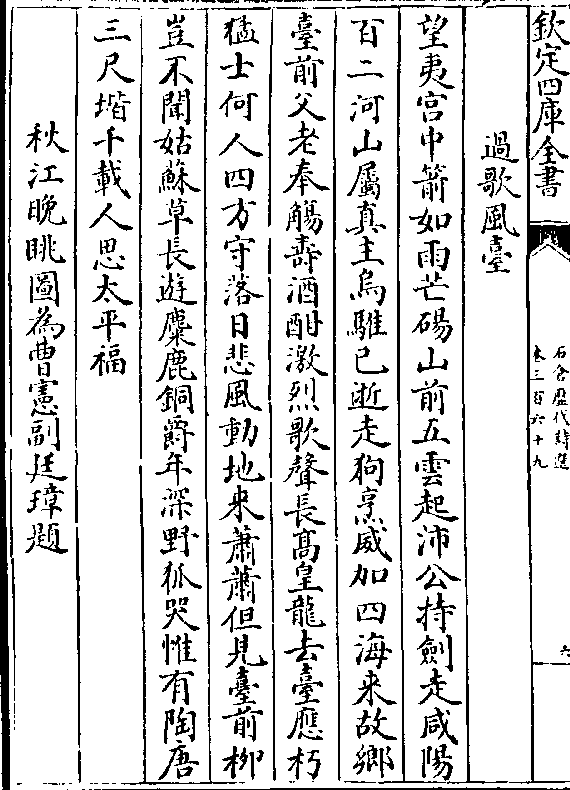 欽定四庫全書
石倉歷代詩選
卷三百六十九
六
過歌風臺
望夷宮中箭如雨芒碭山前五雲起沛公持劍走咸陽
百二河山屬真主烏騅已逝走狗烹威加四海来故鄉
臺前父老奉觴壽酒酣激烈歌聲長髙皇龍去臺應朽
猛士何人四方守落日悲風動地来蕭蕭但見臺前柳
豈不聞姑蘇草長遊麋鹿銅爵年深野狐哭惟有陶唐
三尺堦千載人思太平福
秋江晚眺圖為曹憲副廷璋題